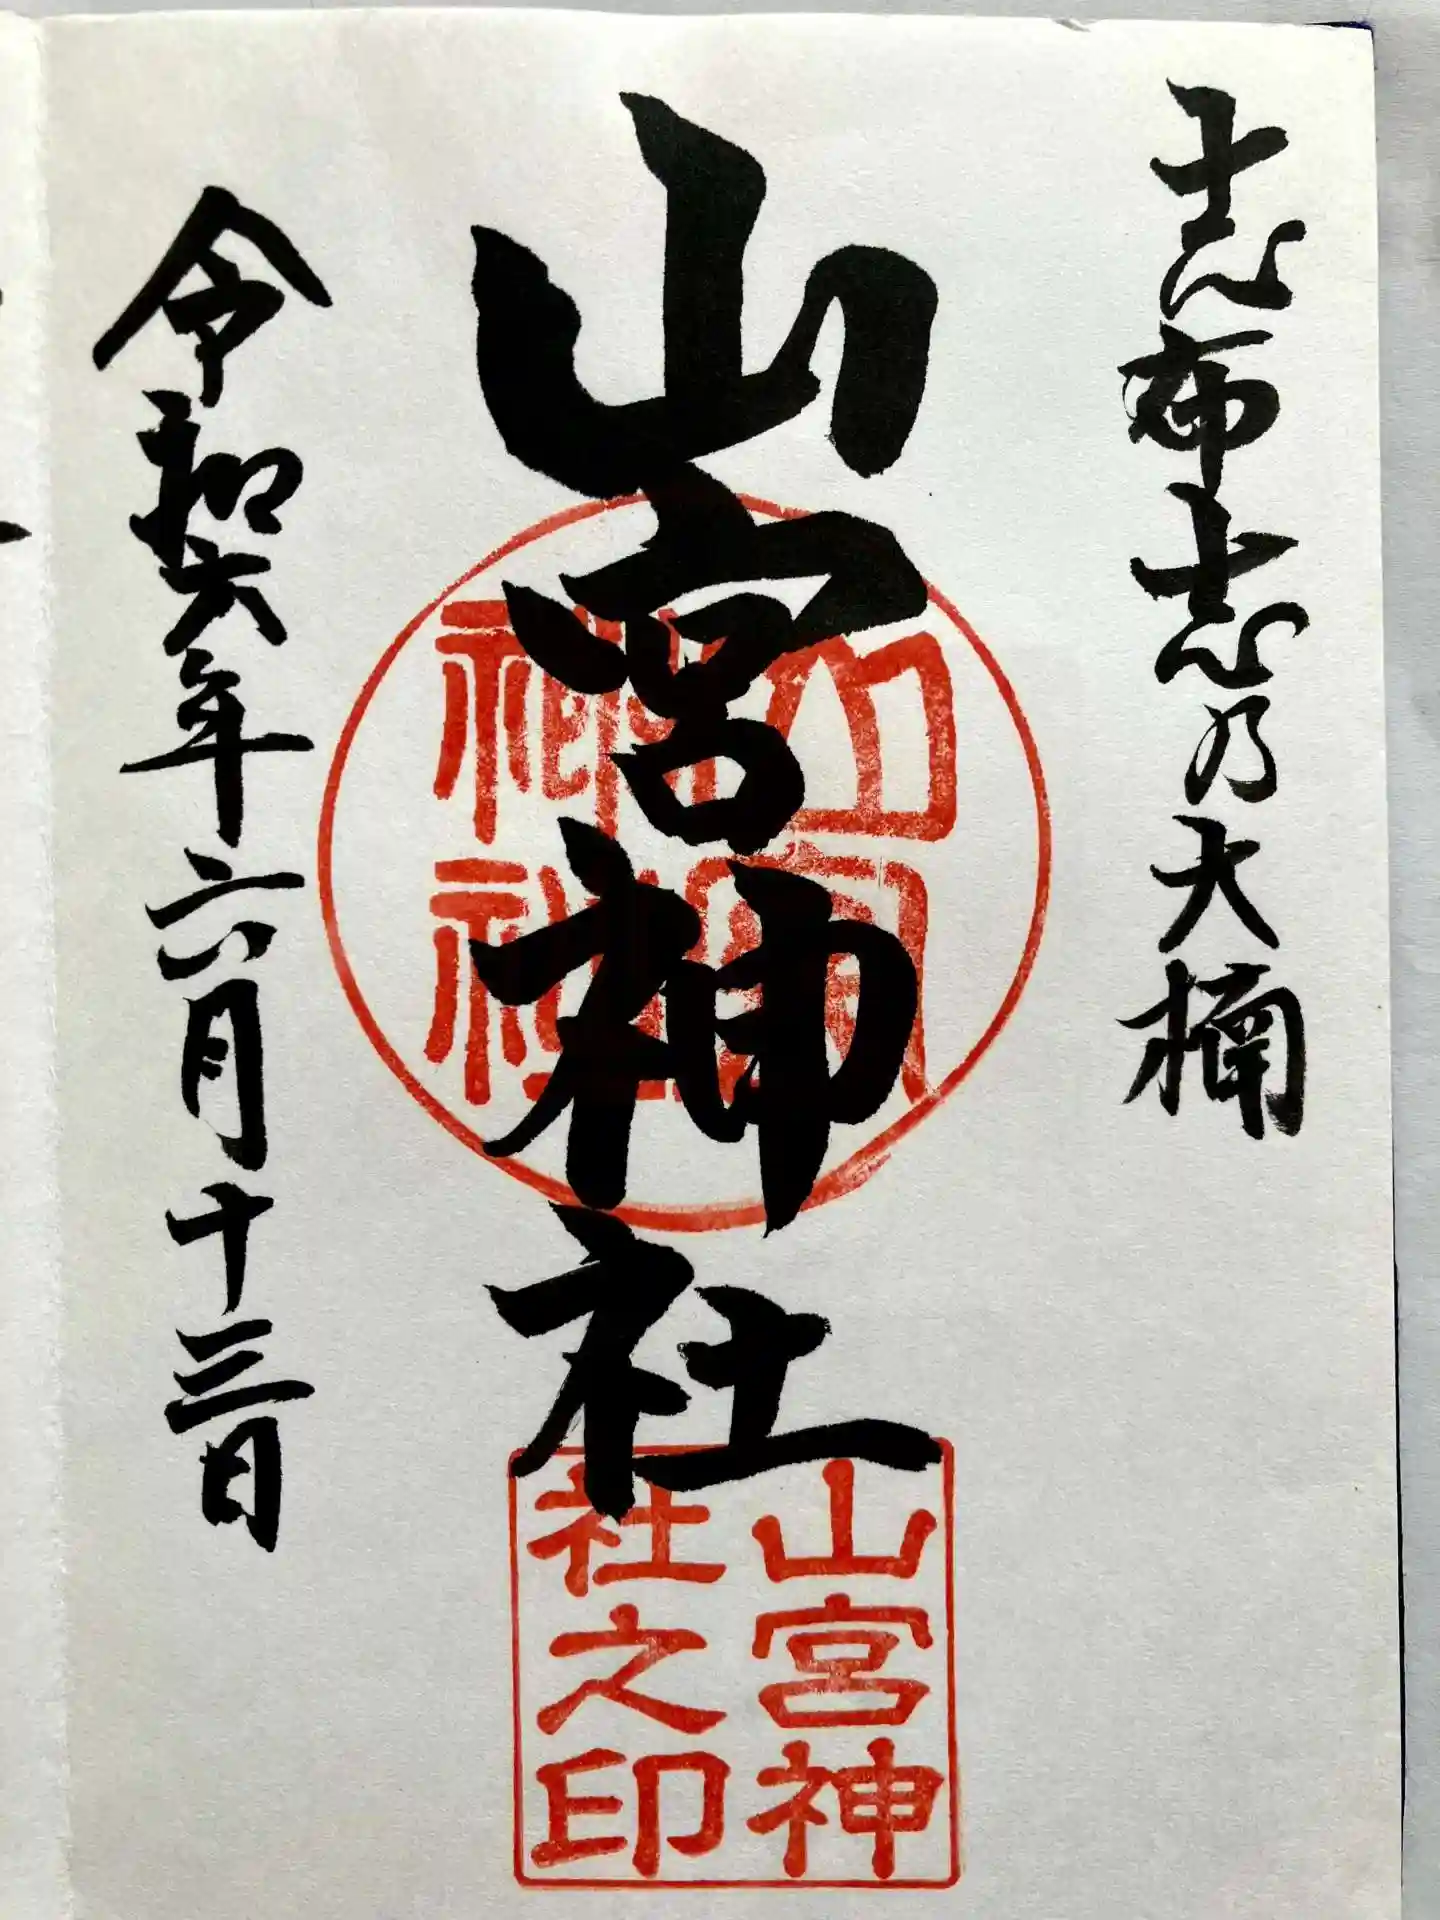 志布志乃大楠
山宮神社
山宮
神社
山宮神
社之印
令和六年六月十三日